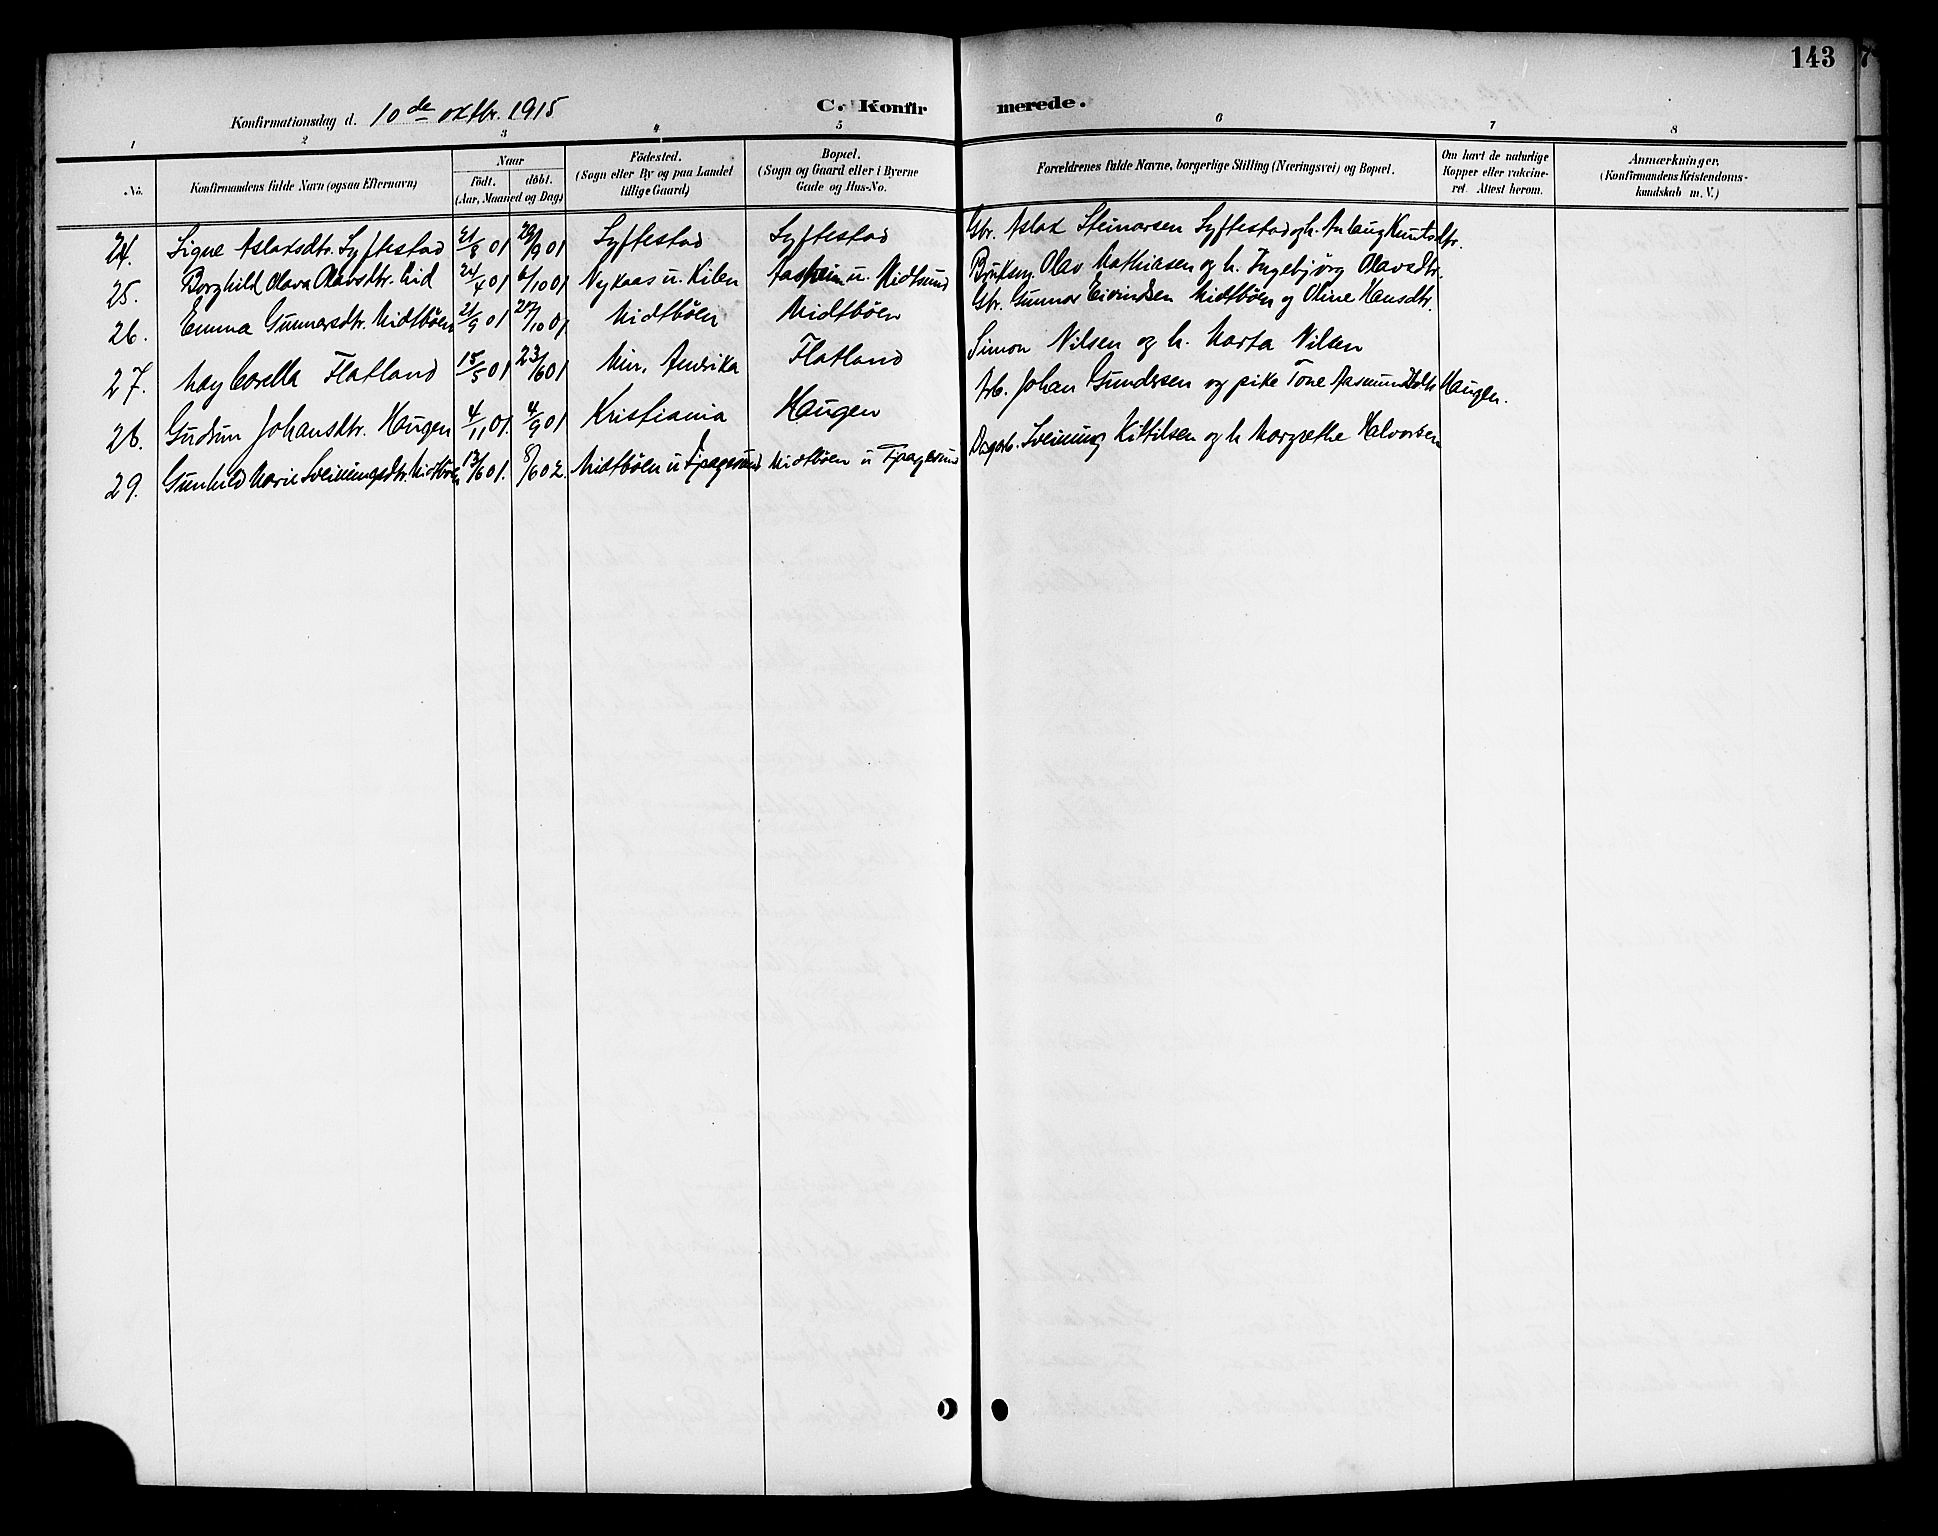 143
Konfirmationsdag d. 10de oktbr. 1915
C. Konfirmerede.
1 2 3 4 5 6 7 8
No. Konfirmandens fulde Navn (ogsaa Efternavn) Naar født. døbt. (Aar, Maaned og Dag) Födested. (Sogn eller By og paa Landet tillige Gaard) Bopæl. (Sogn og Gaard eller i Byerne Gade og Hus-No. Forældrenes fulde Navne, borgerlige Stilling (Næringsvei) og Bopæl. Om havt de naturlige Kopper eller vakcineret. Attest herom. Anmærkninger. (Konfirmandens Kristendomskundskab m. V.)
24. Signe Aslaksdtr. Syftestad 21/8 01 29/9 01 Syftestad Syftestad Gbr. Aslak Steinarsen Syftestad og h. Anlaug Knutsdtr.
25. Borghild Olava Olavsdtr. Lid 24/4 01 6/10 01 Nykaas u. Kilen Aasheim u. Midtsund Bruksm. Olav Mathiasen og h. Ingebjørg Olavsdtr.
26. Emma Gunnarsdtr. Midtbøen 21/9 01 27/10 01 Midtbøen Midtbøen Gbr. Gunnar Eivindsen Midtbøen og Oline Hansdtr.
27. May Corella Flatland 15/5 01 23/6 01 Min. Amrika Flatland Simon Nilsen og h. Marta Nilsen
28. Gudrun Johansdtr. Haugen 4/11 01. 4/9 01 Kristiania Haugen Arb. Johan Gundersen og pike Tone Aasmundsdtr. Haugen.
29. Gunhild Marie Sveinungsdtr. Midtbøen 13/6 01. 8/6 02. Midtbøen u Tjaagesund Midtbøen u Tjaagesund Dagarb. Sveinung Kittilsen og h Margrethe Halvorsen